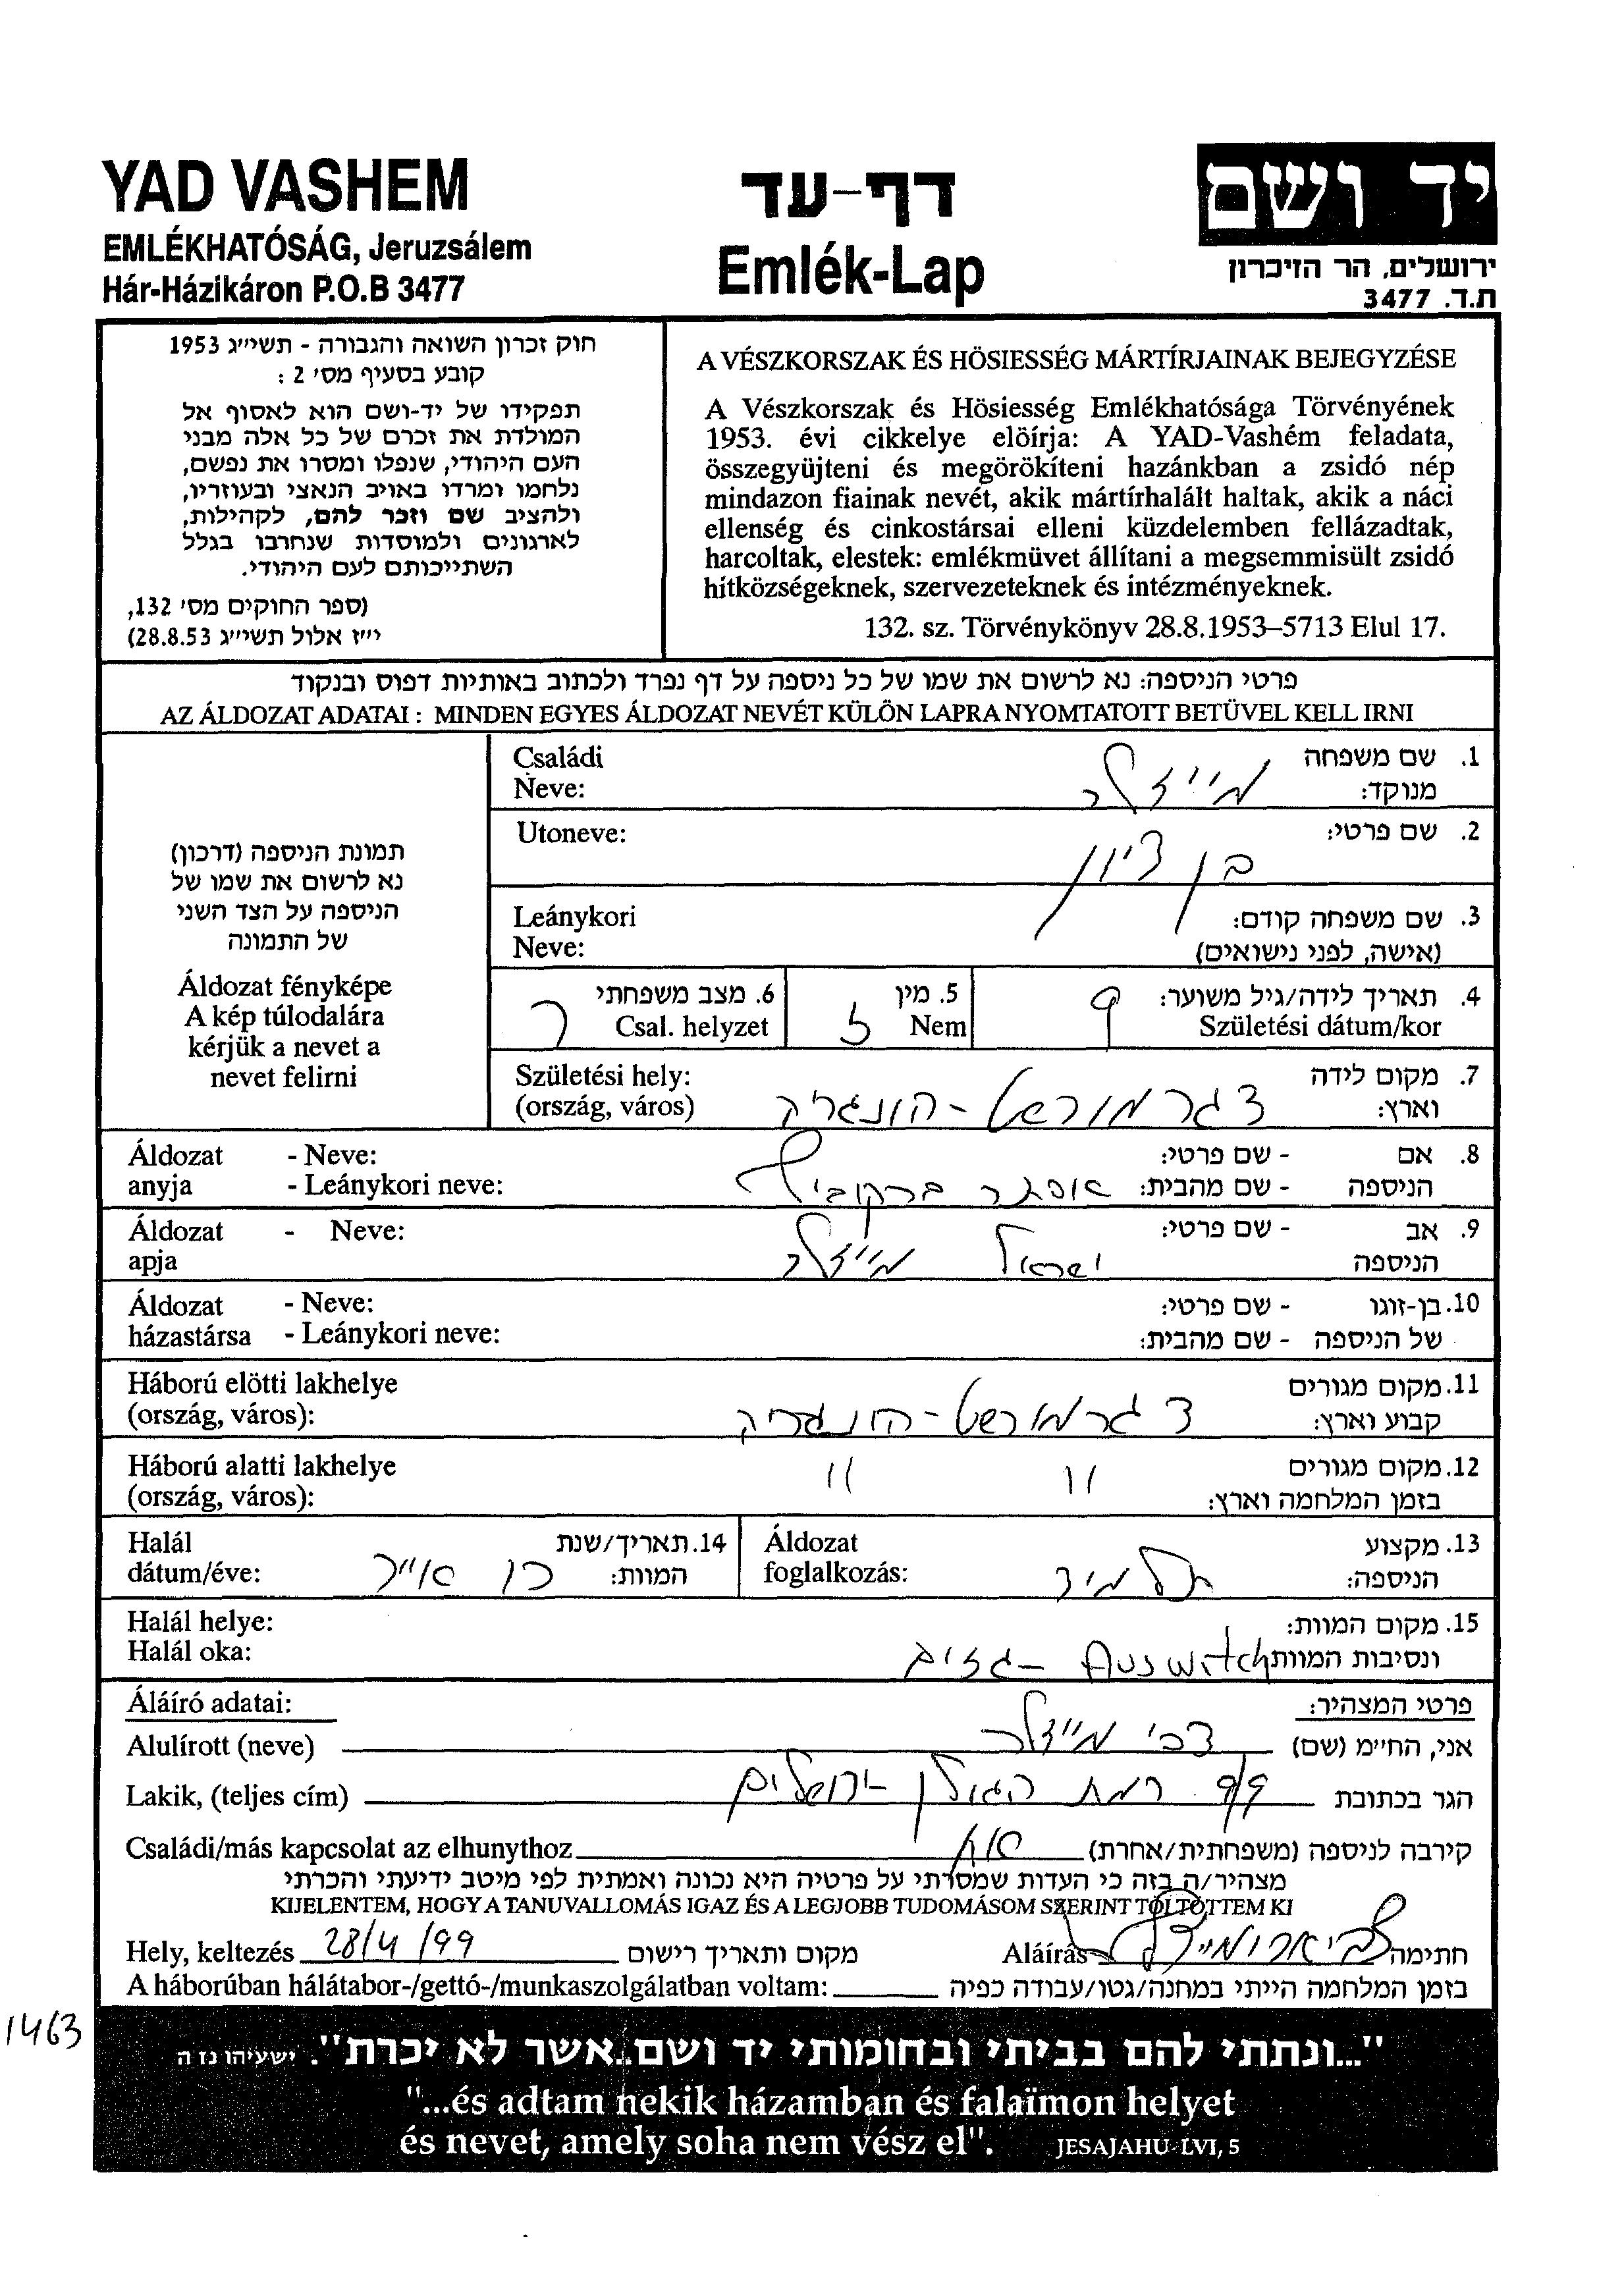 YAD VASHEM
EMLÉKHATÓSÁG, Jeruzsálem
Hár-Házikáron P.O.B 3477
דף-עד
Emlék-Lap
יד ושם
ירושלים, הר הזיכרון
ת.ד. 3477
חוק זכרון השואה והגבורה - תשי״ג 1953
קובע בסעיף מס׳ 2 :
תפקידו של יד-ושם הוא לאסוף אל
המולדת את זכרם של כל אלה מבני
העם היהודי, שנפלו ומסרו את נפשם,
נלחמו ומרדו באויב הנאצי ובעוזריו,
ולהציב שם וזכר להם, לקהילות,
לארגונים ולמוסדות שנחרבו בגלל
השתייכותם לעם היהודי.
(ספר החוקים מס׳ 132,
י״ז אלול תשי״ג 28.8.53)
A VÉSZKORSZAK ÉS HÖSIESSÉG MÁRTÍRJAINAK BEJEGYZÉSE
A Vészkorszak és Hösiesség Emlékhatósága Törvényének
1953. évi cikkelye elöírja: A YAD-Vashém feladata,
összegyüjteni és megörökíteni hazánkban a zsidó nép
mindazon fiainak nevét, akik mártírhalált haltak, akik a náci
ellenség és cinkostársai elleni küzdelemben fellázadtak,
harcoltak, elestek: emlékmüvet állítani a megsemmisült zsidó
hitközségeknek, szervezeteknek és intézményeknek.
132. sz. Törvénykönyv 28.8.1953–5713 Elul 17.
פרטי הניספה: נא לרשום את שמו של כל ניספה על דף נפרד ולכתוב באותיות דפוס ובנקוד
AZ ÁLDOZAT ADATAI : MINDEN EGYES ÁLDOZAT NEVÉT KÜLÖN LAPRA NYOMTATOTT BETÜVEL KELL IRNI
תמונת הניספה (דרכון)
נא לרשום את שמו של
הניספה על הצד השני
של התמונה
Áldozat fényképe
A kép túlodalára
kérjük a nevet a
nevet felirni
1. שם משפחה מנוקד: מייזלר Családi Neve:
2. שם פרטי: בן ציון Utoneve:
3. שם משפחה קודם: (אישה, לפני נישואים) Leánykori Neve:
4. תאריך לידה/גיל משוער: 9 Születési dátum/kor
5. מין Nem ז
6. מצב משפחתי Csal. helyzet ר
7. מקום לידה וארץ: דגרמורשט - הונגריה Születési hely: (ország, város)
8. אם הניספה - שם פרטי: - שם מהבית: אסתר ברקוביץ Áldozat anyja - Neve: - Leánykori neve:
9. אב הניספה - שם פרטי: ישראל מייזלר Áldozat apja - Neve:
10. בן-זוגו של הניספה - שם פרטי: - שם מהבית: Áldozat házastársa - Neve: - Leánykori neve:
11. מקום מגורים קבוע וארץ: דגרמורשט - הונגריה Háború elötti lakhelye (ország, város):
12. מקום מגורים בזמן המלחמה וארץ: " " Háború alatti lakhelye (ország, város):
13. מקצוע הניספה: תלמיד Áldozat foglalkozás:
14. תאריך/שנת המוות: כן אייר Halál dátum/éve:
15. מקום המוות: ונסיבות המוות Auswitch - גזים Halál helye: Halál oka:
פרטי המצהיר: Áláíró adatai:
אני, החי״מ (שם) צבי מייזלר Alulírott (neve)
הגר בכתובת 9/9 רמת הגולן ירושלים Lakik, (teljes cím)
קירבה לניספה (משפחתית/אחרת) אח Családi/más kapcsolat az elhunythoz
מצהיר/ה בזה כי העדות שמסרתי על פרטיה היא נכונה ואמתית לפי מיטב ידיעתי והכרתי
KIJELENTEM, HOGY A TANUVALLOMÁS IGAZ ÉS A LEGJOBB TUDOMÁSOM SZERINT TÖLTÖTTEM KI
Hely, keltezés 28/4/99 מקום ותאריך רישום Aláírás חתימה
A háborúban hálátabor-/gettó-/munkaszolgálatban voltam: בזמן המלחמה הייתי במחנה/גטו/עבודה כפיה
1463
"...ונתתי להם בביתי ובחומותי יד ושם..אשר לא יכרת". ישעיהו נז ה
"...és adtam nekik házamban és falaïmon helyet
és nevet, amely soha nem vész el". JESAJAHU LVI, 5